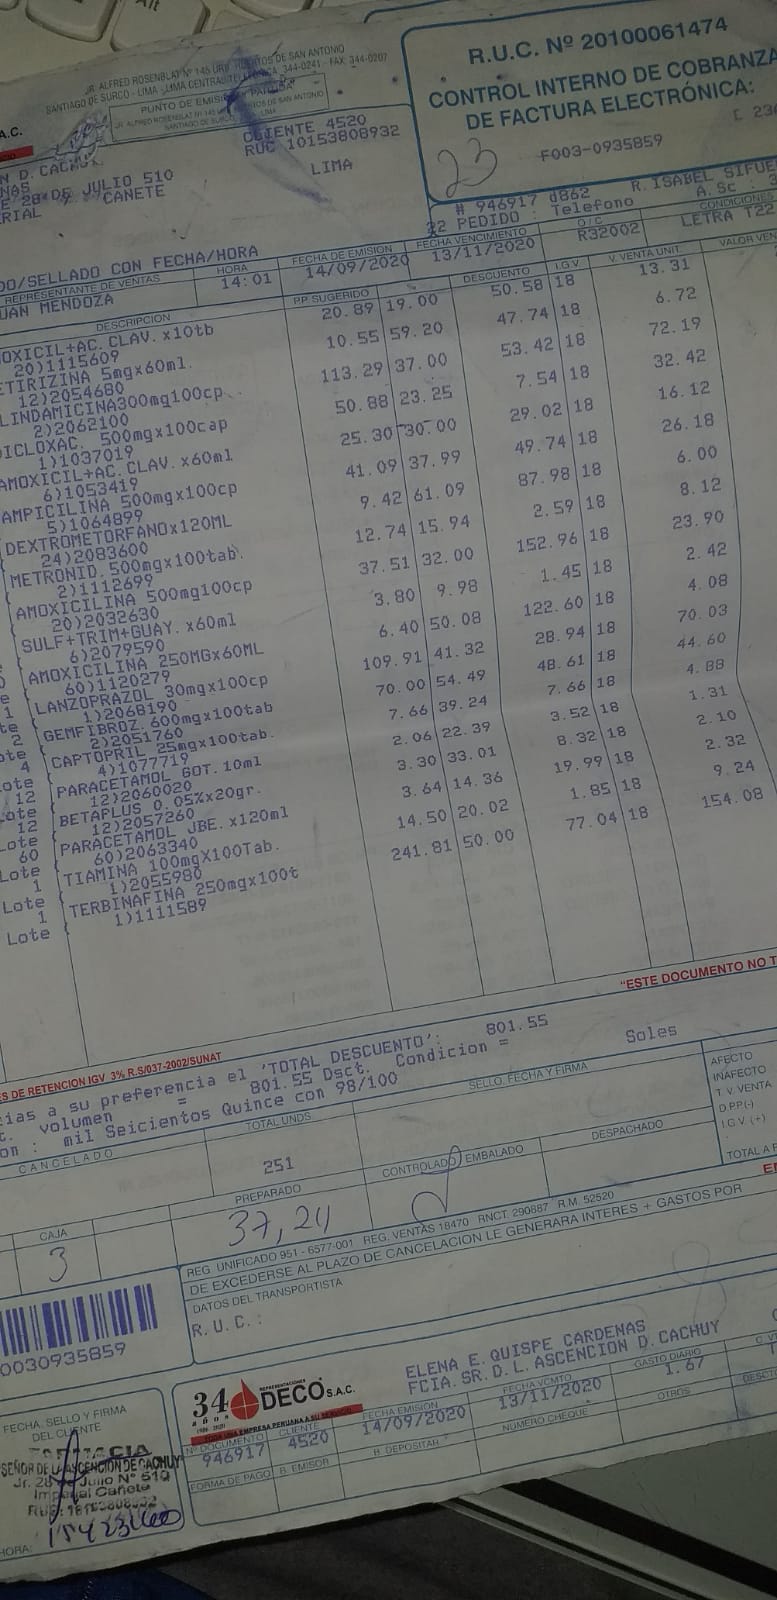 Alt
JR. ALFRED ROSENBLAT Nº 145 URB. HUERTOS DE SAN ANTONIO
SANTIAGO DE SURCO - LIMA - LIMA CENTRAL 344-0241 - FAX: 344-0207
PUNTO DE EMISIÓN
JR. ALFRED ROSENBLAT Nº 145 HUERTOS DE SAN ANTONIO
SANTIAGO DE SURCO LIMA
R.U.C. Nº 20100061474
CONTROL INTERNO DE COBRANZA
DE FACTURA ELECTRÓNICA:
23
F003-0935859
A.C.
CLIENTE 4520
RUC 10153808932
N D. CACHUY
NAS
E 28 DE JULIO 510
ERIAL CAÑETE
LIMA
# 946917 d862 R. ISABEL SIFUE
22 PEDIDO : Telefono A. Sc :
DO/SELLADO CON FECHA/HORA
REPRESENTANTE DE VENTAS HORA FECHA DE EMISION FECHA VENCIMIENTO O/C CONDICIONES
UAN MENDOZA 14:01 14/09/2020 13/11/2020 R32002 LETRA T22
DESCRIPCION PP. SUGERIDO DESCUENTO I.G.V. V. VENTA UNIT. VALOR VEN
OXICIL+AC. CLAV. x10tb 20.89 19.00 50.58 18 13.31
20)1115609
ETIRIZINA 5mgx60ml. 10.55 59.20 47.74 18 6.72
12)2054680
LINDAMICINA300mg100cp. 113.29 37.00 53.42 18 72.19
2)2062100
DICLOXAC. 500mgx100cap 50.88 23.25 7.54 18 32.42
1)1037019
AMOXICIL+AC. CLAV. x60ml 25.30 30.00 29.02 18 16.12
6)1053419
AMPICILINA 500mgx100cp 41.09 37.99 49.74 18 26.18
5)1064899
DEXTROMETORFANOx120ML 9.42 61.09 87.98 18 6.00
24)2083600
METRONID. 500mgx100tab. 12.74 15.94 2.59 18 8.12
2)1112699
AMOXICILINA 500mg100cp 37.51 32.00 152.96 18 23.90
20)2032630
SULF+TRIM+GUAY. x60ml 3.80 9.98 1.45 18 2.42
6)2079590
AMOXICILINA 250MGx60ML 6.40 50.08 122.60 18 4.08
60)1120279
LANZOPRAZOL 30mgx100cp 109.91 41.32 28.94 18 70.03
1)2068190
GEMFIBROZ. 600mgx100tab 70.00 54.49 48.61 18 44.60
2)2051760
CAPTOPRIL 25mgx100tab. 7.66 39.24 7.66 18 4.88
4)1077719
PARACETAMOL GOT. 10ml 2.06 22.39 3.52 18 1.31
12)2060020
BETAPLUS 0.05%x20gr. 3.30 33.01 8.32 18 2.10
12)2057260
PARACETAMOL JBE. x120ml 3.64 14.36 19.99 18 2.32
60)2063340
TIAMINA 100mgX100Tab. 14.50 20.02 1.85 18 9.24
1)2055980
TERBINAFINA 250mgx100t 241.81 50.00 77.04 18 154.08
1)1111589
"ESTE DOCUMENTO NO T
ES DE RETENCION IGV 3% R.S/037-2002/SUNAT
cias a su preferencia el 'TOTAL DESCUENTO': 801.55
t. volumen = 801.55 Dsct. Condicion =
on : mil Seicientos Quince con 98/100 Soles
CANCELADO TOTAL UNDS SELLO, FECHA Y FIRMA
251
AFECTO
INAFECTO
T. V. VENTA
D.PP(-)
I.G.V. (+)
TOTAL A P
CAJA PREPARADO CONTROLADO EMBALADO DESPACHADO
3 37,24
REG. UNIFICADO 951 - 6577-001 REG. VENTAS 18470 RNCT. 290687 R.M. 52520
DE EXCEDERSE AL PLAZO DE CANCELACION LE GENERARA INTERES + GASTOS POR
DATOS DEL TRANSPORTISTA
R.U.C.:
0030935859
34 años
REPRESENTACIONES
DECO S.A.C.
TODA UNA EMPRESA PERUANA A SU SERVICIO
ELENA E. QUISPE CARDENAS
FCIA. SR. D. L. ASCENCION D. CACHUY
Nº DOCUMENTO CLIENTE FECHA EMISIÓN FECHA VCMTO GASTO DIARIO
946917 4520 14/09/2020 13/11/2020 1.67
FORMA DE PAGO B. EMISOR B. DEPOSITAR NÚMERO CHEQUE OTROS
FECHA, SELLO Y FIRMA
DEL CLIENTE
SEÑOR DE LA ASCENCION DE CACHUY
Jr. 28 de Julio Nº 510
Imperial Cañete
15423460
HORA: